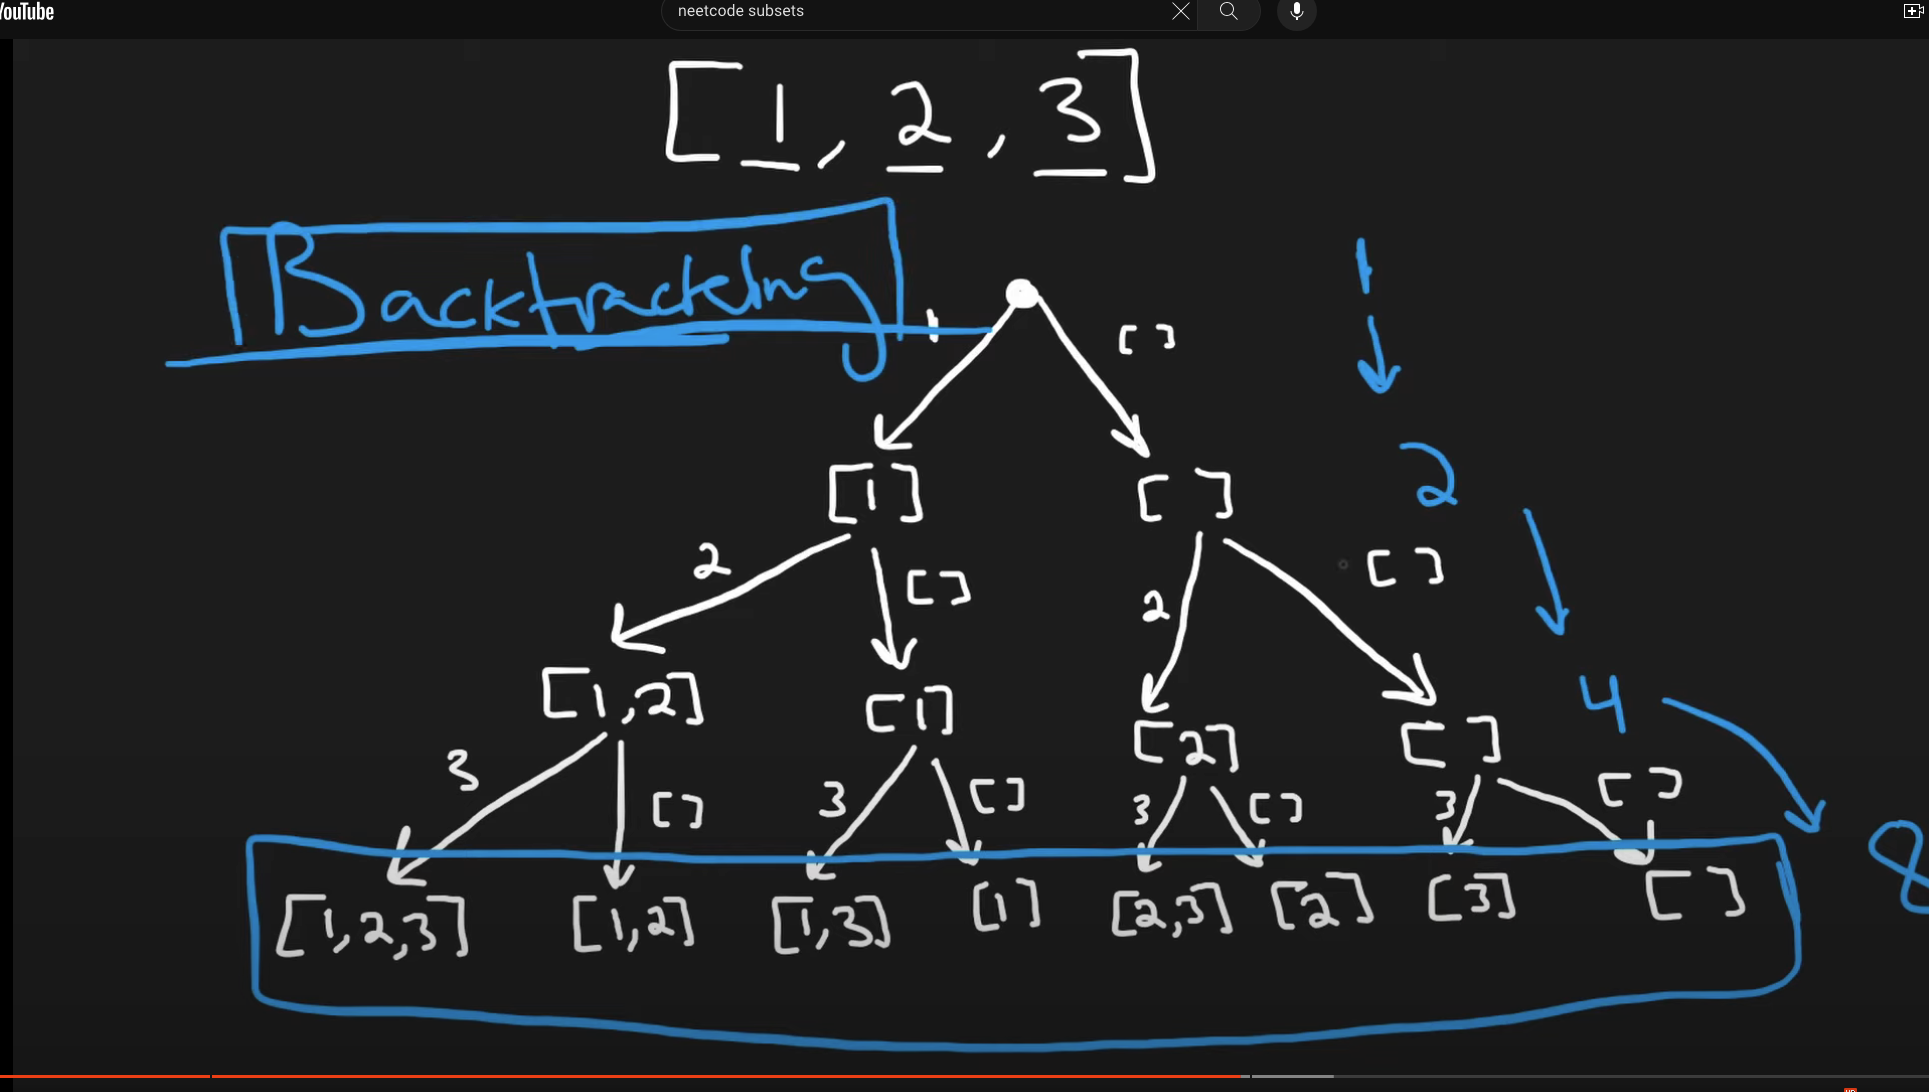 YouTube
neetcode subsets
[1, 2, 3]
Backtracking
1 [ ]
1
[1] [ ]
2
2 [ ] 2 [ ]
[1,2] [1] [2] [ ]
4
3 [ ] 3 [ ] 3 [ ] 3 [ ]
8
[1,2,3] [1,2] [1,3] [1] [2,3] [2] [3] [ ]